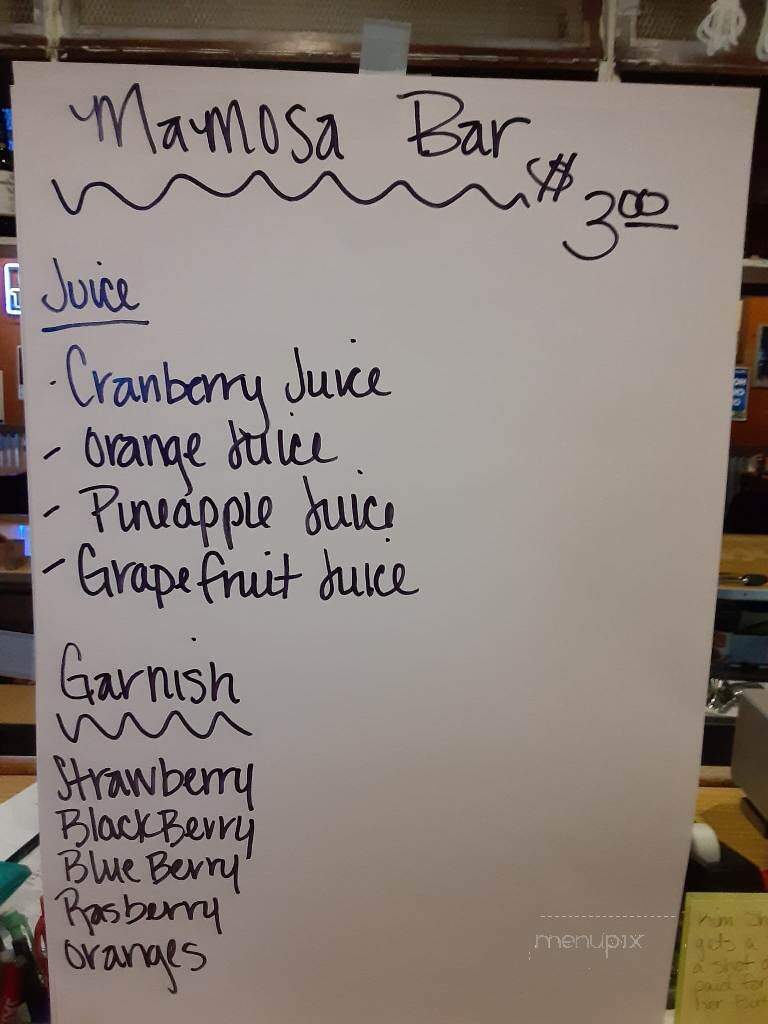 Mamosa Bar
$3.00
Juice
· Cranberry Juice
- Orange Juice
- Pineapple Juice
- Grapefruit Juice
Garnish
Strawberry
BlackBerry
Blue Berry
Rasberry
Oranges
menupix
gets a
a shot
paid for